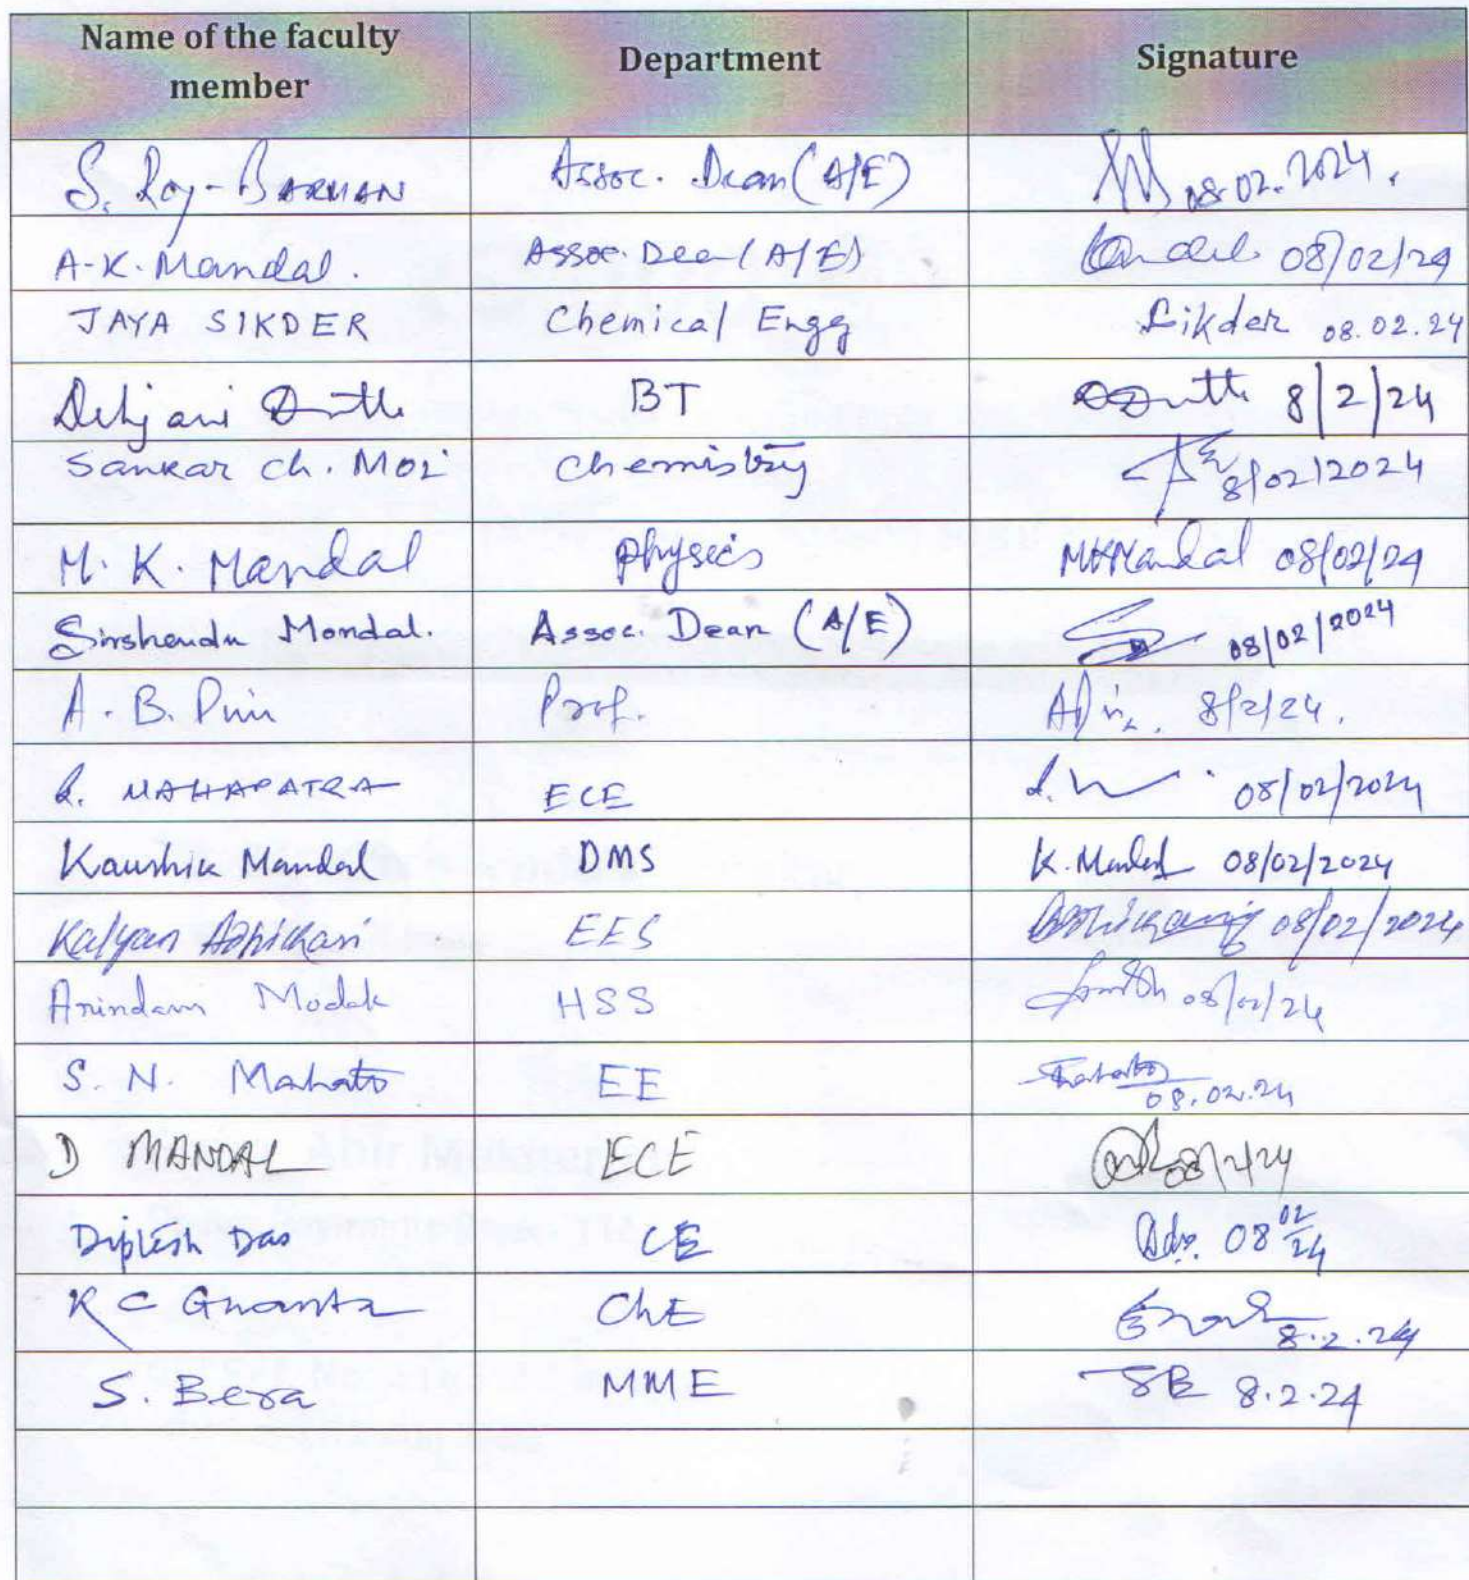 Name of the faculty member Department Signature
S. Roy-BARMAN Assoc. Dean (A/E) 08.02.2024.
A.K. Mandal. Assoc. Dean (A/E) 08/02/24
JAYA SIKDER Chemical Engg Sikder 08.02.24
Debjani Dutta BT 8/2/24
Sankar Ch. Moi Chemistry 8/02/2024
M. K. Mandal Physics MKMandal 08/02/24
Sirshendu Mondal. Assoc. Dean (A/E) 08/02/2024
A. B. Puri Prof. 8/2/24.
R. MAHAPATRA ECE 08/02/2024
Kaushik Mandal DMS K. Mandal 08/02/2024
Kalyan Adhikari EES Adhikari 08/02/2024
Arindam Modak HSS 08/02/24
S. N. Mahato EE Mahato 08.02.24
D MANDAL ECE 08/2/24
Diptesh Das CE 08 02/24
K C Ghanta ChE 8.2.24
S. Bera MME SB 8.2.24